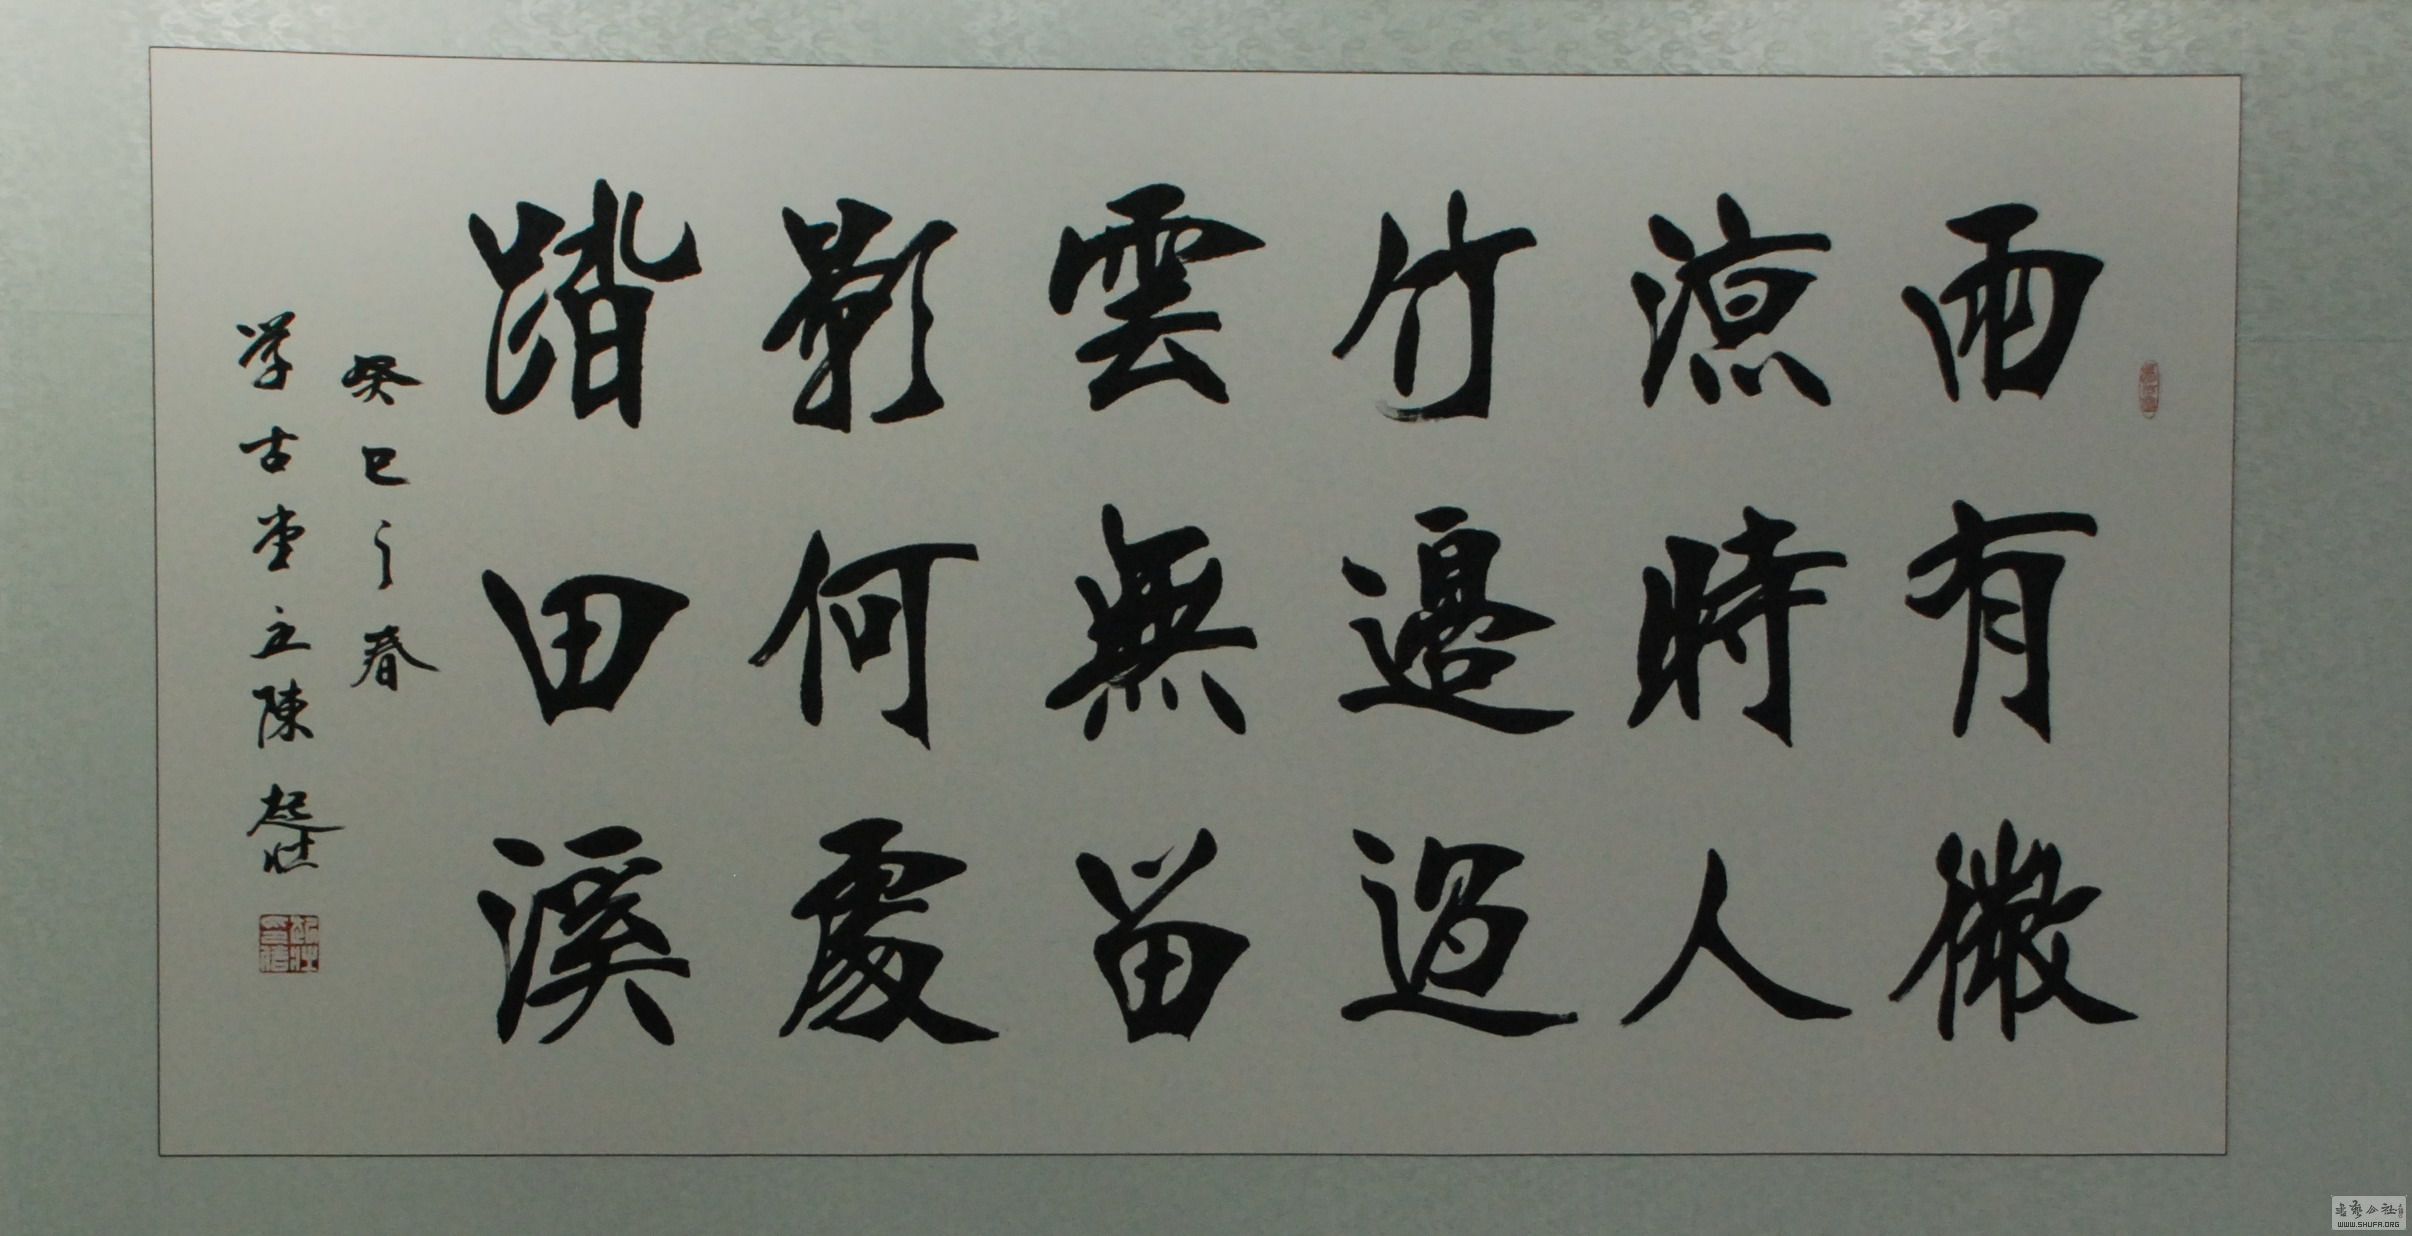 雨有微
涼時人
竹邊過
雲無留
影何處
踏田溪
癸巳之春
学古堂主陳起壮
书艺公社
WWW.SHUFA.ORG